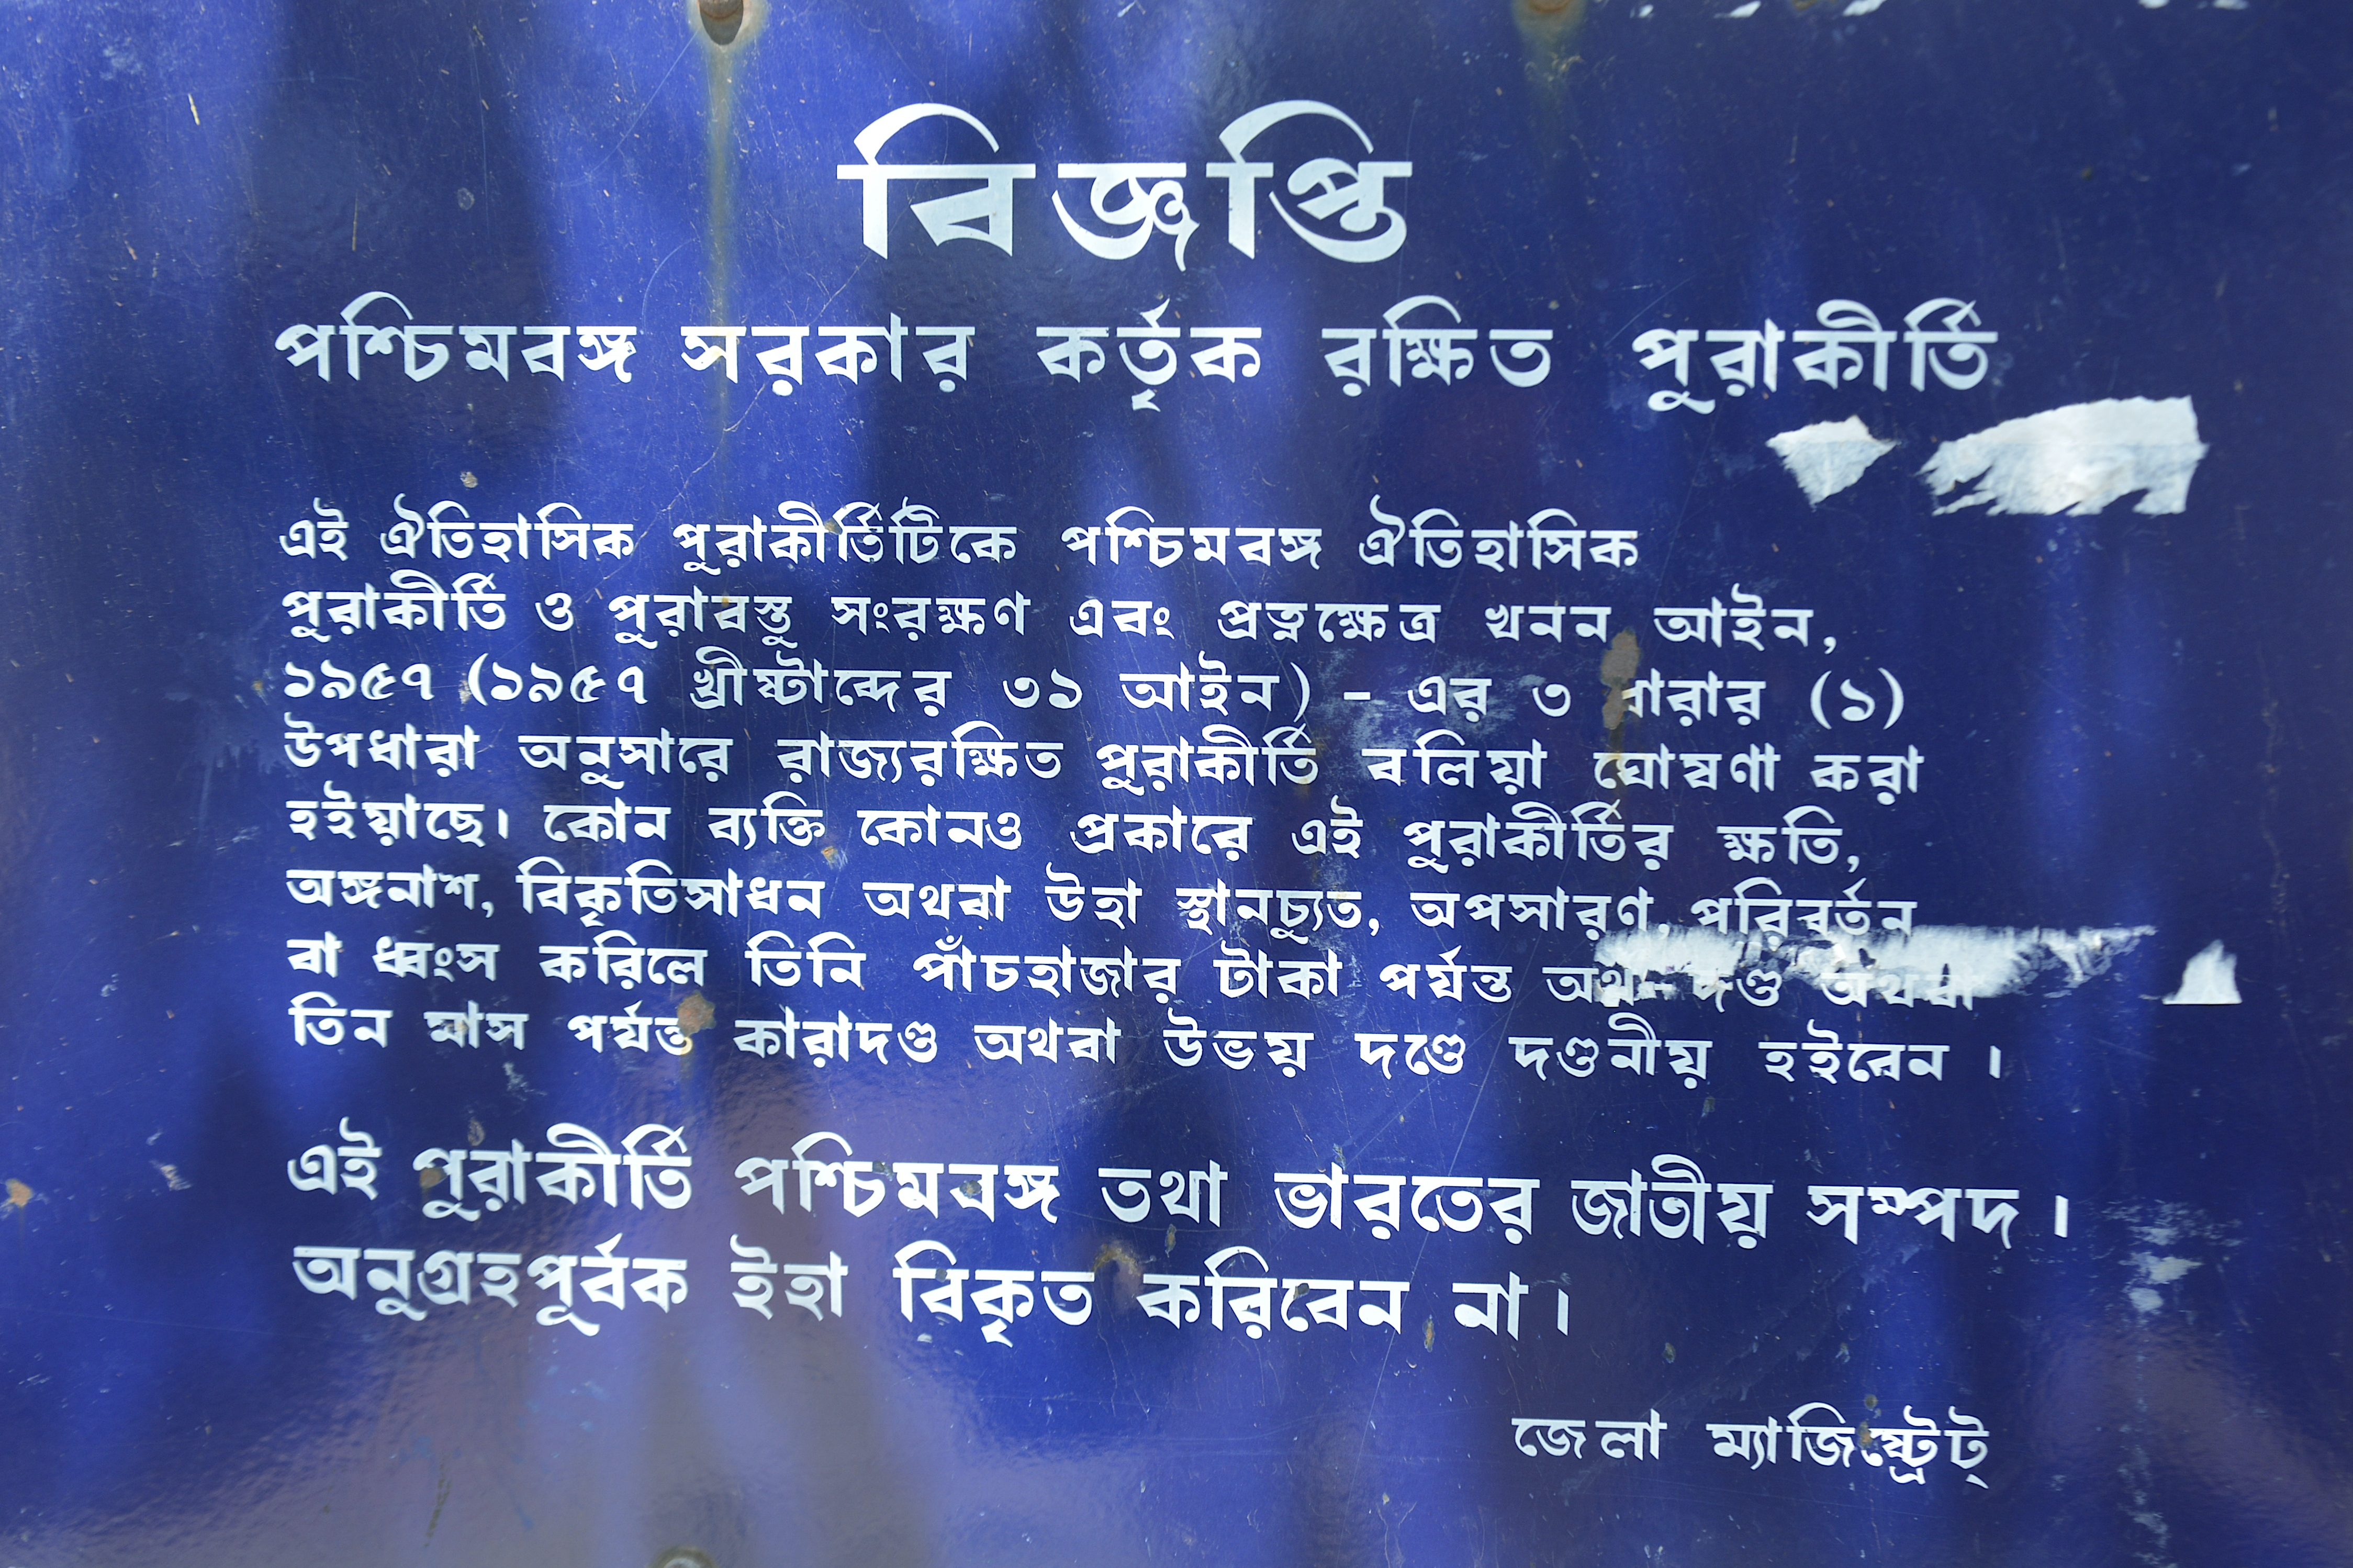 বিজ্ঞপ্তি
পশ্চিমবঙ্গ সরকার কর্তৃক রক্ষিত পুরাকীর্তি
এই ঐতিহাসিক পুরাকীর্তিটিকে পশ্চিমবঙ্গ ঐতিহাসিক
পুরাকীর্তি ও পুরাবস্তু সংরক্ষণ এবং প্রত্নক্ষেত্র খনন আইন,
১৯৫৭ (১৯৫৭ খ্রীষ্টাব্দের ৩১ আইন) - এর ৩ ধারার (১)
উপধারা অনুসারে রাজ্যরক্ষিত পুরাকীর্তি বলিয়া ঘোষণা করা
হইয়াছে। কোন ব্যক্তি কোনও প্রকারে এই পুরাকীর্তির ক্ষতি,
অঙ্গনাশ, বিকৃতিসাধন অথবা উহা স্থানচ্যুত, অপসারণ, পরিবর্তন
বা ধ্বংস করিলে তিনি পাঁচহাজার টাকা পর্যন্ত অর্থ-দণ্ড অথবা
তিন মাস পর্যন্ত কারাদণ্ড অথবা উভয় দণ্ডে দণ্ডনীয় হইবেন ।
এই পুরাকীর্তি পশ্চিমবঙ্গ তথা ভারতের জাতীয় সম্পদ ।
অনুগ্রহপূর্বক ইহা বিকৃত করিবেন না ।
জেলা ম্যাজিষ্ট্রেট্